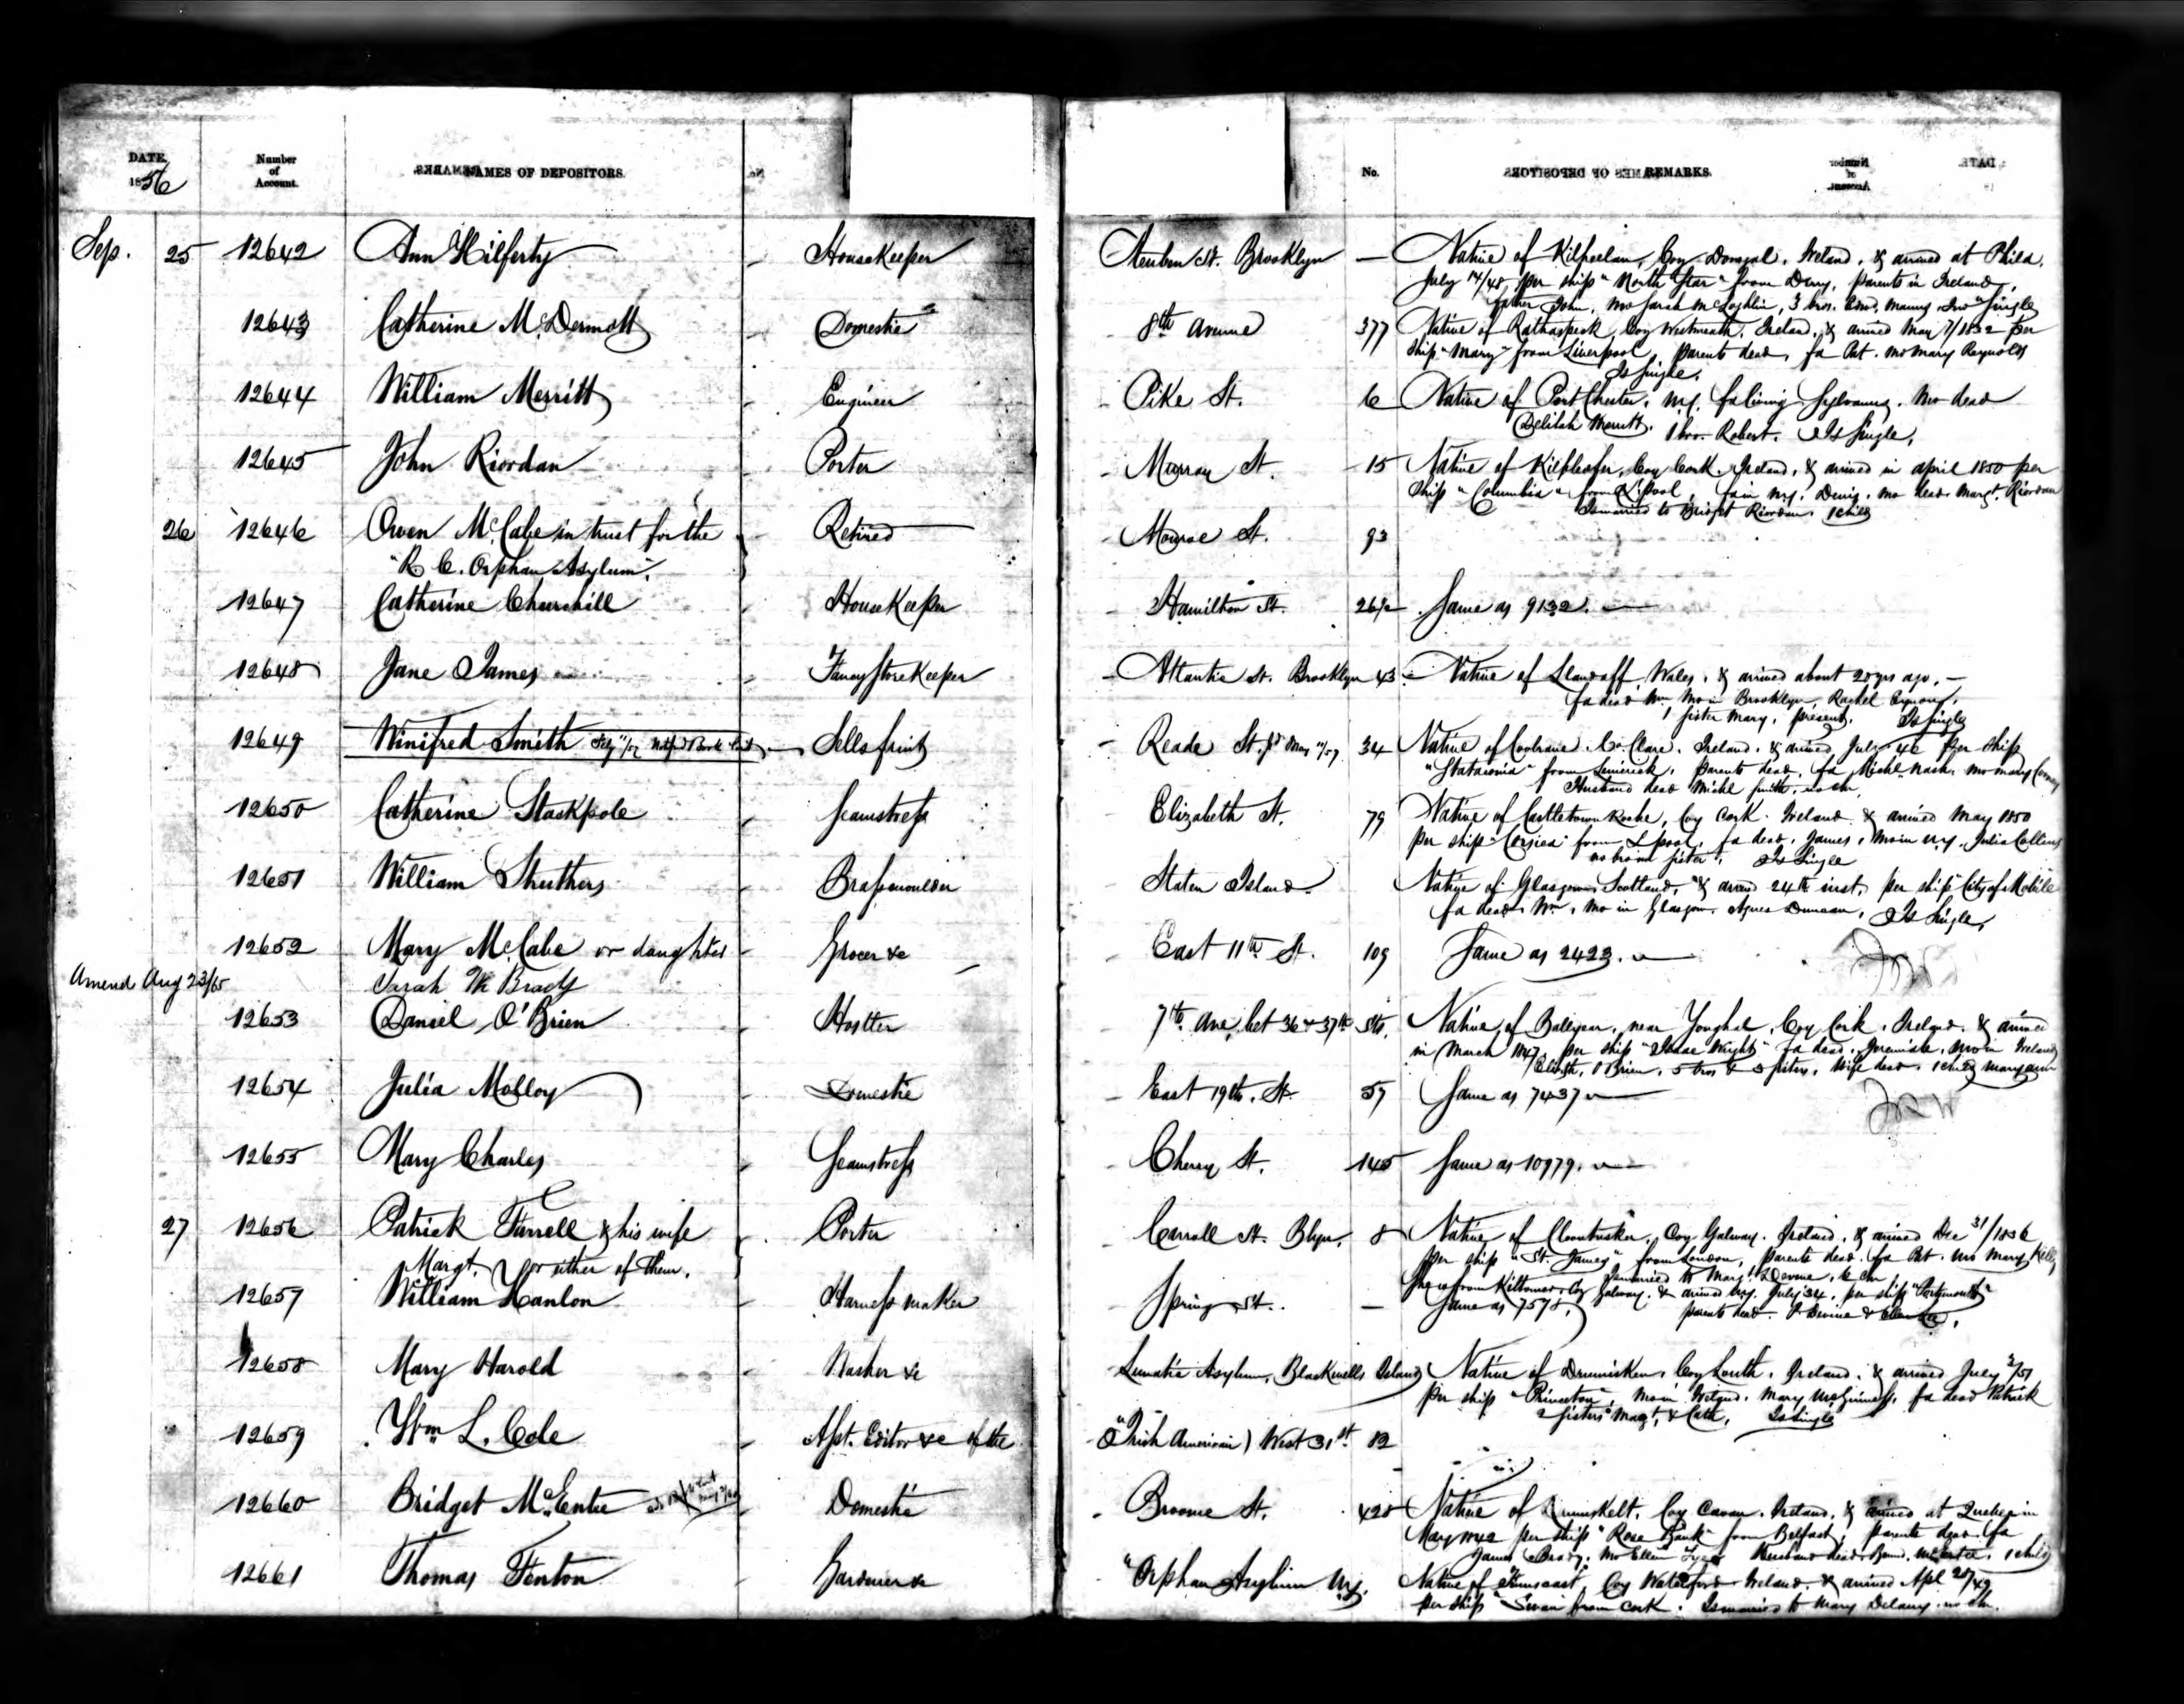 DATE. Number of Account. NAMES OF DEPOSITORS. No. REMARKS.
1856
Sep. 25 12642 Ann Hilferty Housekeeper Steuben St. Brooklyn — Native of Coy Donegal. Ireland, & arrived at Phila.
July 14/48, per ship "North Star" from Derry, parents in Ireland,
father John, mo Sarah McLoghlin, 3 bros. Edw. Manus Single
12643 Catherine McDermott Domestic 8th Avenue 377 Native of Rathaspeck Coy Westmeath, Ireland, & arrived May 7/1852 per
ship "Mary" from Liverpool, parents dead, fa Pat. mo Mary Reynolds
Is Single.
12644 William Merritt Engineer Pike St. 6 Native of Port Chester, N.Y. fa living Sylvanus. Mo dead
Delilah Merritt. 1 bro. Robert. Is Single.
12645 John Riordan Porter Murray St. 15 Native of Coy Cork. Ireland, & arrived in april 1850 per
ship "Columbia" from L'pool, fa in N.Y. Denis. mo dead Margt. Riordan
Is married to Bridget Riordan. 1 child
26 12646 Owen McCabe in trust for the Retired Monroe St. 93
"R. C. Orphan Asylum".
12647 Catherine Churchill HouseKeeper Hamilton St. 26½ Same as 9132.
12648 Jane James Fancy StoreKeeper Atlantic St. Brooklyn 43 Native of Llandaff Wales, & arrived about 20 yrs ago, —
fa dead Wm. Mo in Brooklyn, Rachel
1 sister Mary, present. Is Single
12649 Winifred Smith Sells fruit Reade St. 34 Native of Co. Clare. Ireland. & arrived July 46 per ship
from Limerick, parents dead, fa Michl. Nash. mo Mary
Husband dead Michl Smith. no chn.
12650 Catherine Stackpole Seamstress Elizabeth St. 79 Native of Castletown Roche, Coy Cork. Ireland & arrived May 1850
per ship "Corsica" from L'pool, fa dead, James, Mo in N.Y. Julia Collins
no bro nor sister, Is Single
12651 William Struthers Brassmoulder Staten Island. Native of Glasgow Scotland, & arrived 24th inst. per ship "City of Mobile
fa dead Wm, Mo in Glasgow, Agnes Duncan, Is Single,
12652 Mary McCabe or daughter Grocer &c East 11th St. 109 Same as 2423.
Amend Aug 23/65 Sarah Mc Brady
12653 Daniel O'Brien Hostler 7th Ave, bet 36 & 37th Sts. Native of near Youghal, Coy Cork, Ireland. & arrived
in March 1847, per ship "Isaac Wright" fa dead, Jeremiah, Mo in Ireland
O'Brien, 5 bros & 3 sisters, Wife dead, 1 child Mary ann
12654 Julia Molloy Domestic East 19th. St. 57 Same as 7437
12655 Mary Charles Seamstress Cherry St. 145 Same as 10979.
27 12656 Patrick Farrell & his wife Porter Carroll St. Bklyn. 8 Native of Coy Galway. Ireland, & arrived Dec 31/1836
Margt. or either of them. per ship "St. James" from London, parents dead. fa Pat. mo Mary Kelly
Is married to Margt. Devine, 6 chn
She is from Coy Galway. & arrived N.Y. July 34, per ship "Portsmouth"
parents dead. P. Devine & Ellen Lee,
12657 William Hanlon Harness maker Spring St. — Same as 7578.
12658 Mary Harold Washer &c Lunatic Asylum, Blackwells Island Native of Coy Louth, Ireland, & arrived July 3/51
per ship "Princeton", Mo in Ireland. Mary McGinness, fa dead Patrick
2 sisters Margt. & Cath. Is Single
12659 Wm L. Cole Asst. Editor &c of the "Irish American) West 31st 12
12660 Bridget McEntee Domestic Broome St. 428 Native of Coy Cavan. Ireland, & arrived at Quebec in
May 1842 per ship "Rose Bank" from Belfast, parents dead. fa
James Brady. Mo Ellen Husband dead McEntee. 1 child
12661 Thomas Fenton Gardener &c "Orphan Asylum N.Y. Native of Coy Waterford Ireland. & arrived Apl
per ship "Swan from Cork. Is married to Mary Delany. no chn.